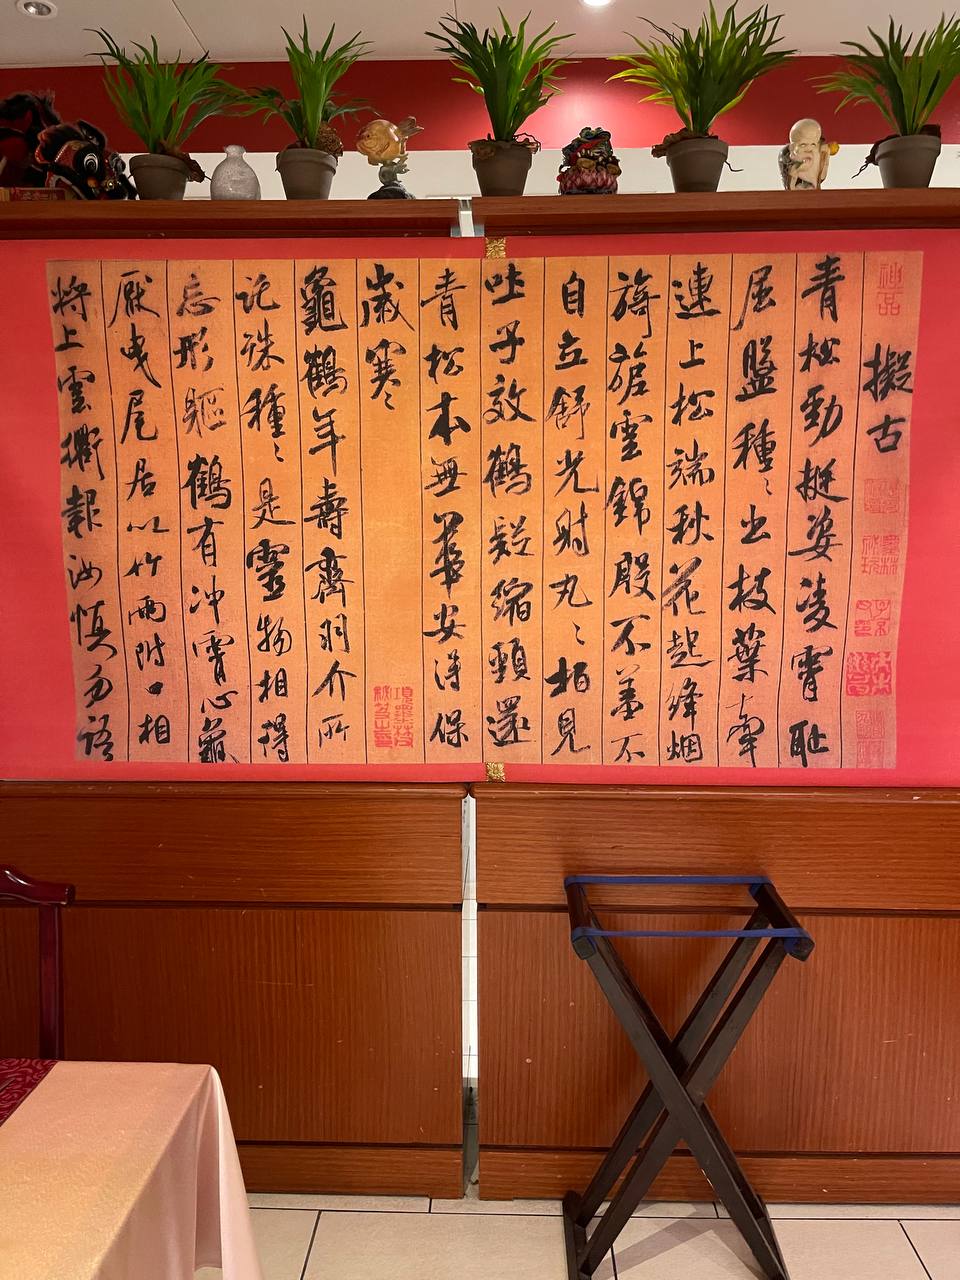 神品
擬古
青松勁挺姿凌霄耻
屈盤種〻出枝葉牽
連上松端秋花起絳烟
旖旎雲錦殷不羞不
自立舒光射丸〻柏見
吐子效鶴疑縮頸還
青松本無華安得保
歲寒
龜鶴年壽齊羽介所
託殊種〻是靈物相得
忘形軀鶴有冲霄心龜
厭曳尾居以竹兩附口相
將上雲衢報汝慎勿語